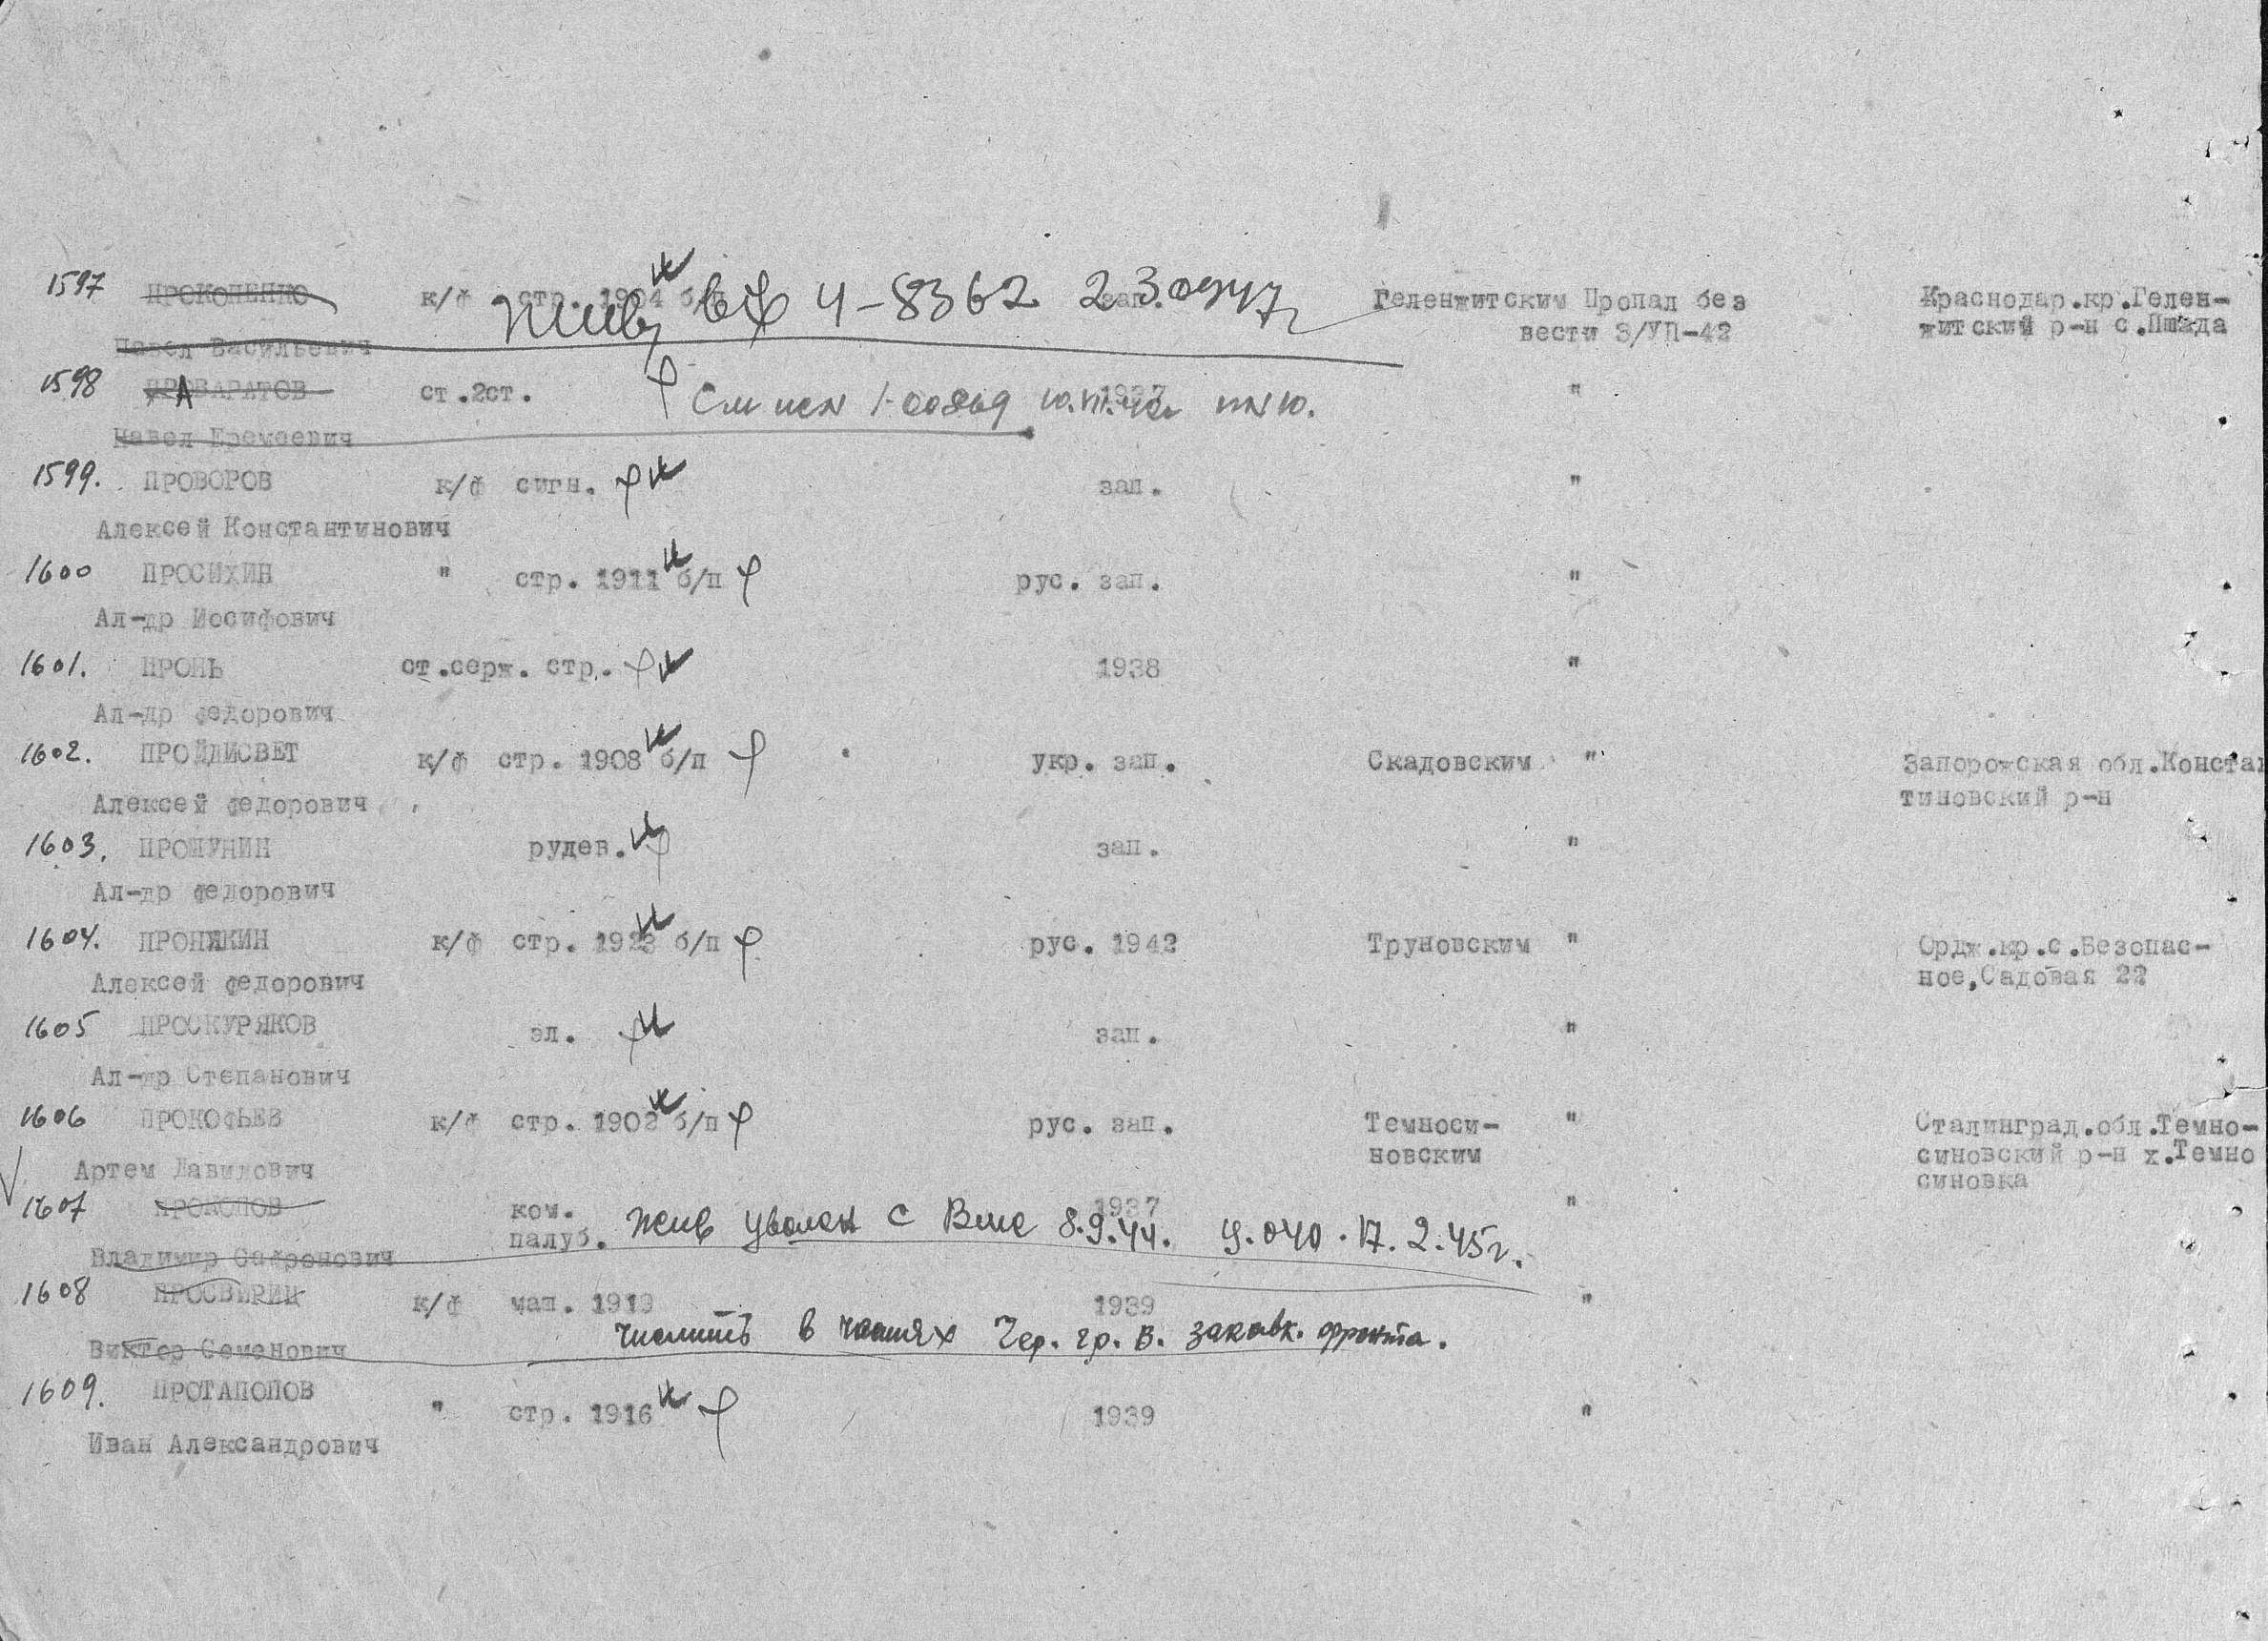 1597 ПРОКОПЕНКО к/ф стр. 1904 б/п зап. Геленжитским Пропал без Краснодар.кр.Гелен-
жив 4-8362
вести 3/УП-42 житский р-н с.Пшада
Павел Васильевич
1598 ПРОВАРАТОВ ст.2ст. 1937 "
А
Павел Ерамеевич
1599. ПРОВОРОВ к/ф сигн. зап. "
Алексей Константинович
1600 ПРОСИХИН " стр. 1911 б/п рус. зап. "
Ал-др Иосифович
1601. ПРОНЬ ст.серж. стр. 1938 "
Ал-др федорович
1602. ПРОЙДИСВЕТ к/ф стр. 1908 б/п укр. зап. Скадовским " Запорожская обл.Констан
Алексей федорович тиновский р-н
1603. ПРОШУНИН рудев. зап. "
Ал-др федорович
1604. ПРОНЯКИН к/ф стр. 1923 б/п рус. 1942 Труновским " Ордж.кр.с.Безопас-
Алексей федорович ное,Садовая 22
1605 ПРОСКУРЯКОВ эл. зап. "
Ал-др Степанович
1606 ПРОКОФЬЕВ к/ф стр. 1902 б/п рус. зап. Темноси- " Сталинград.обл.Темно-
новским синовский р-н х.Темно
Артем Давидович синовка
1607 ПРОКОПОВ ком. 1937 "
палуб. жив уволен с Вмс 8.9.44. у.040.17.2.45г.
Владимир Сафронович
1608 ПРОСВИРИН к/ф маш. 1919 1939 "
числить в частях Чер. гр. В. закавк. фронта.
Виктор Семенович
1609. ПРОТАПОПОВ " стр. 1916 1939 "
Иван Александрович